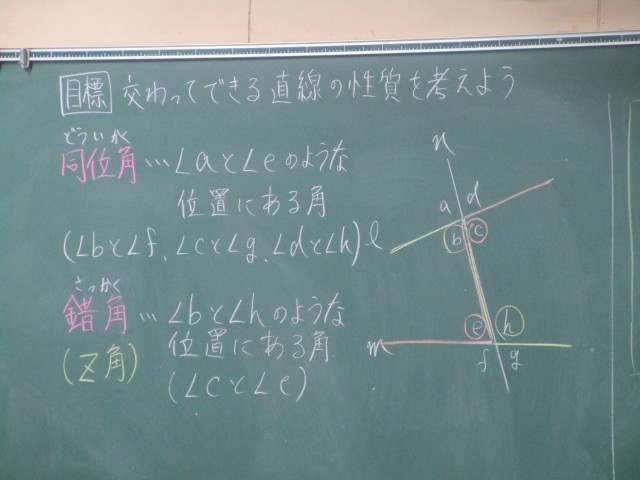 目標 交わってできる直線の性質を考えよう
どういかく
同位角…∠aと∠eのような
位置にある角
(∠bと∠f、∠cと∠g、∠dと∠h)
さっかく
錯角…∠bと∠hのような
位置にある角
(Z角)
(∠cと∠e)
n
a d
l
b c
e h
m
f g